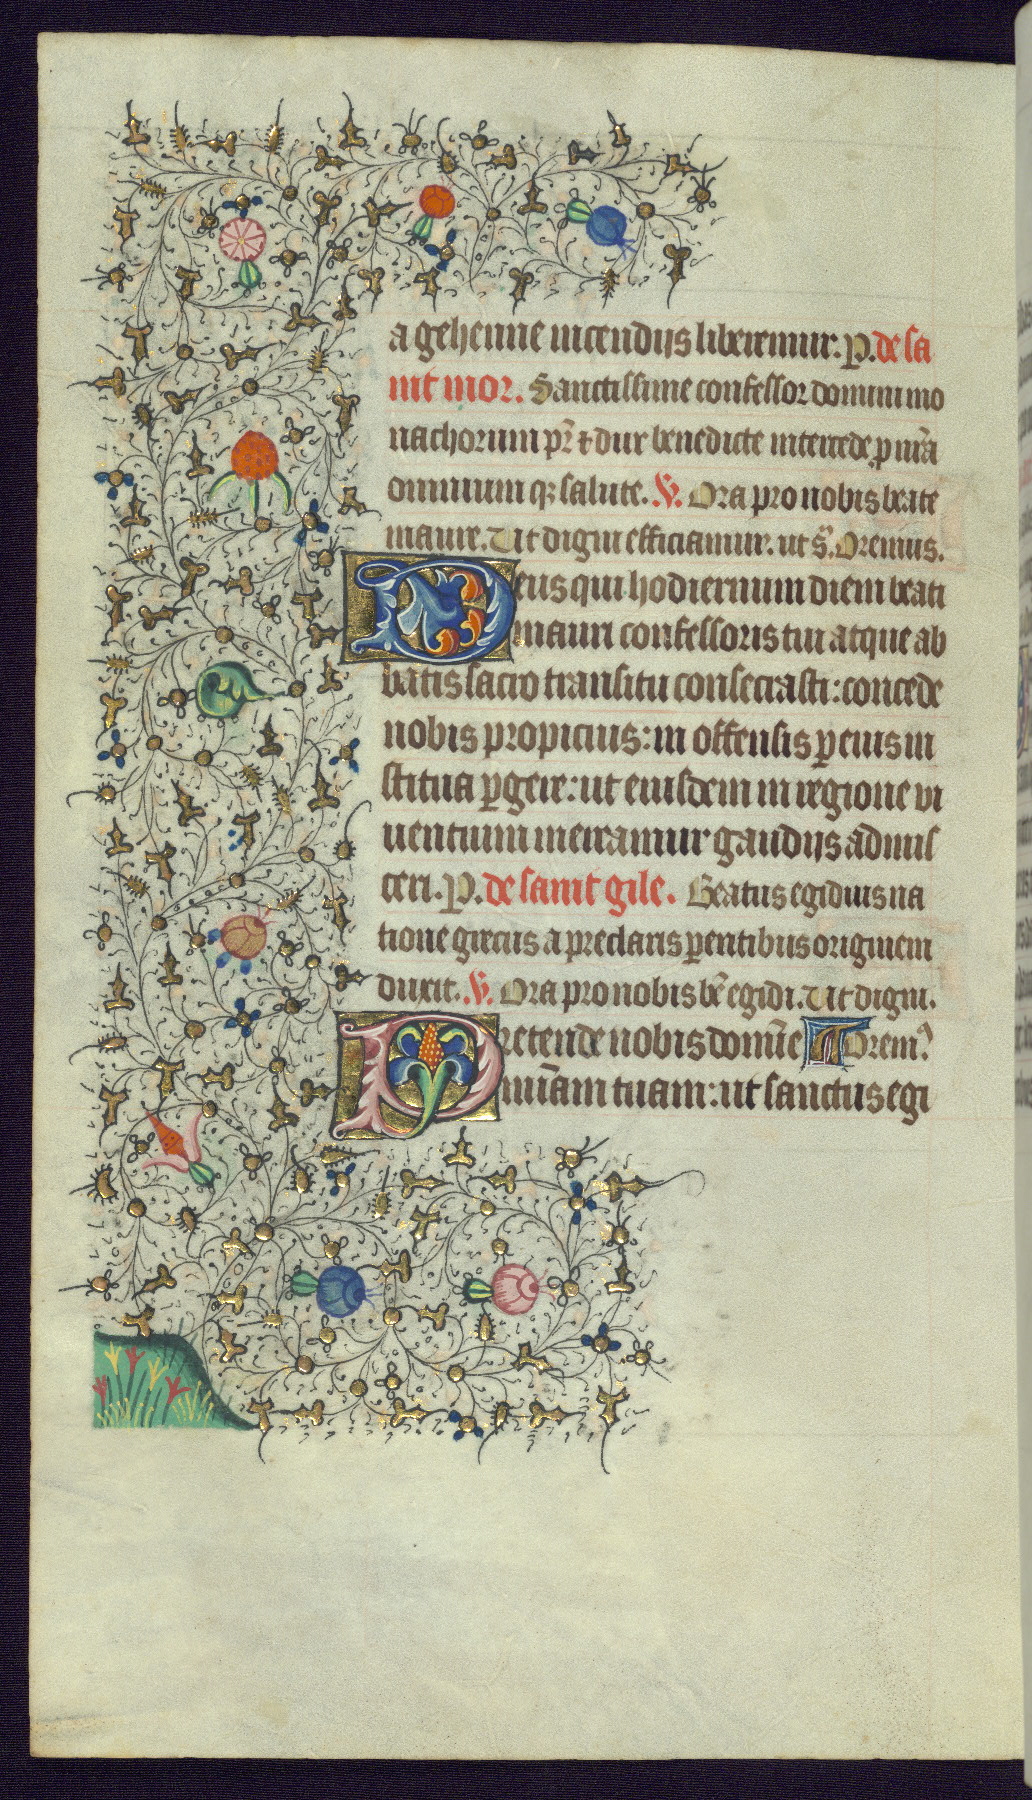 a gehenne incendijs liberemur. P. de sa
int mor. Sanctissime confessor domini mo
nachorum pr̄ ⁊ dux benedicte intercede p nr̄a
omnium qȝ salute. V. Ora pro nobis beate
maure. Ut digni efficiamur. ut sͣ. Oremus.
Deus qui hodiernum diem beati
mauri confessoris tui atque ab
batis sacro transitu consecrasti: concede
nobis propicius: in offensis ꝑ eius in
stituta ꝑgere: ut eiusdem in regione vi
uentium mereamur gaudijs admis
ceri. P. de saint gile. Beatus egidius na
tione grecus a preclaris ꝑentibus originem
duxit. V. Ora pro nobis bē egidi. Ut digni.
Pretende nobis domīe Orem⁹
mīam tuam: ut sanctus egi